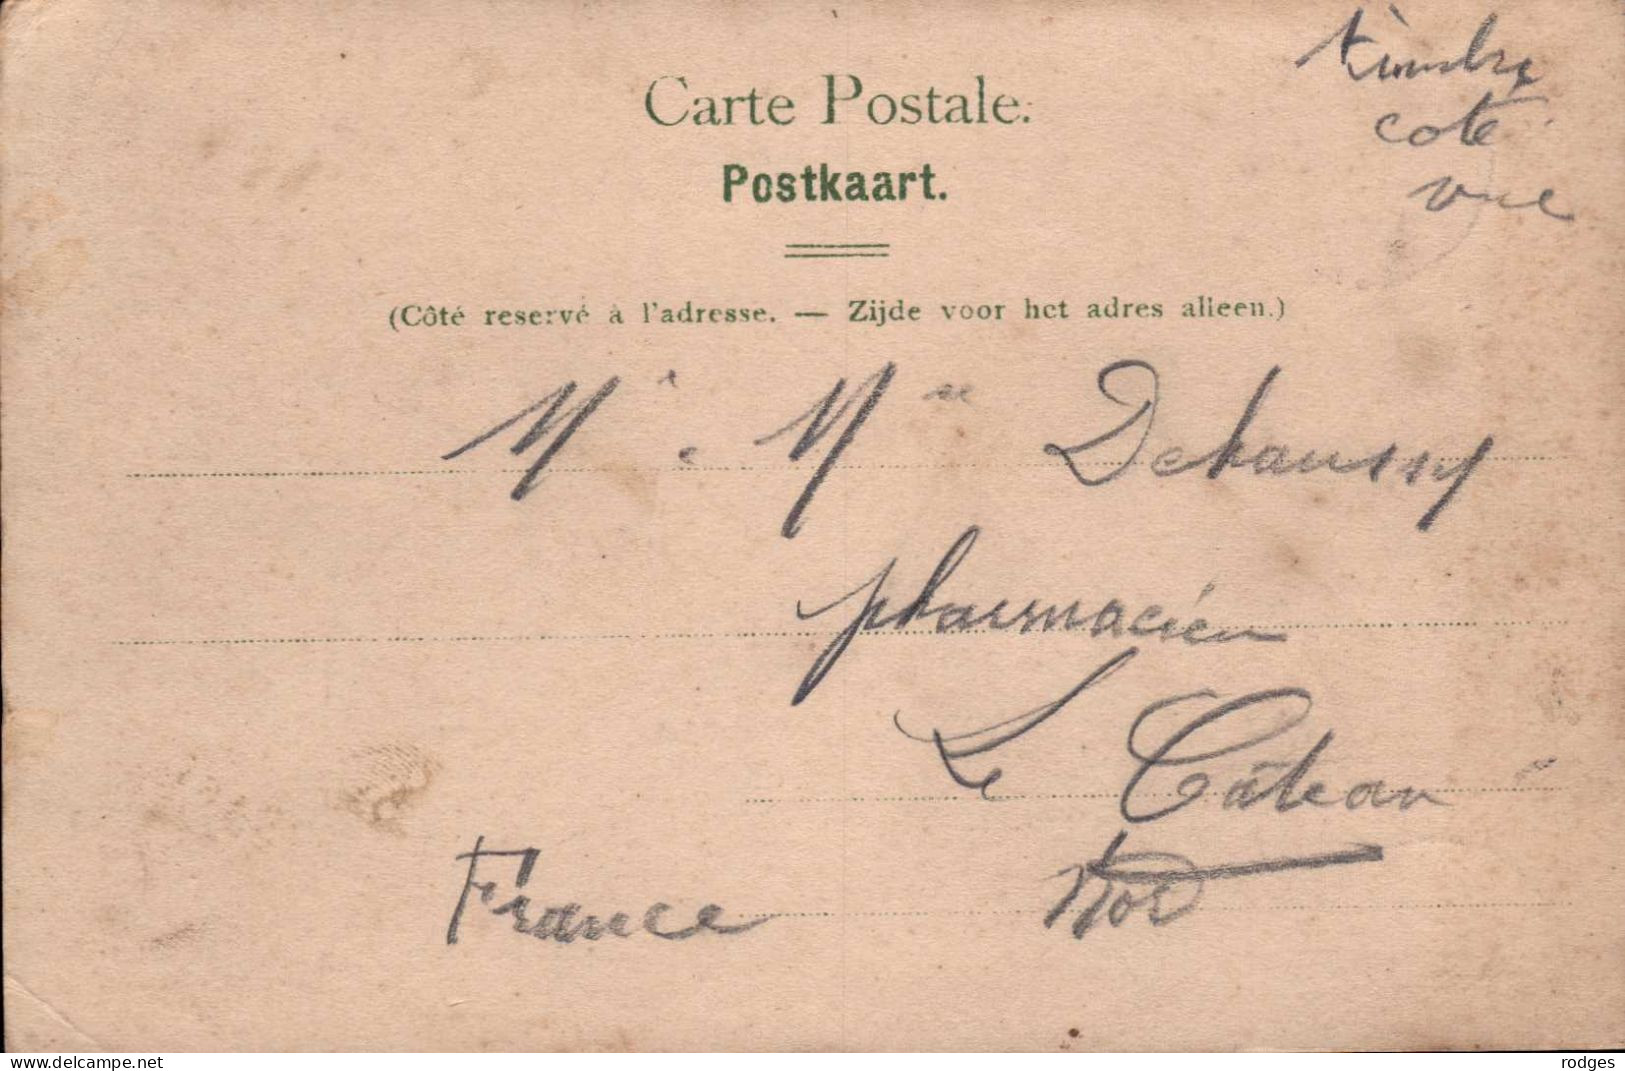 timbre
coté
vue
Carte Postale.
Postkaart.
(Côté reservé à l'adresse. — Zijde voor het adres alleen.)
Mr e Mme Dehaussy
pharmacien
Le Câteau
Nord
France
www.delcampe.net
rodges